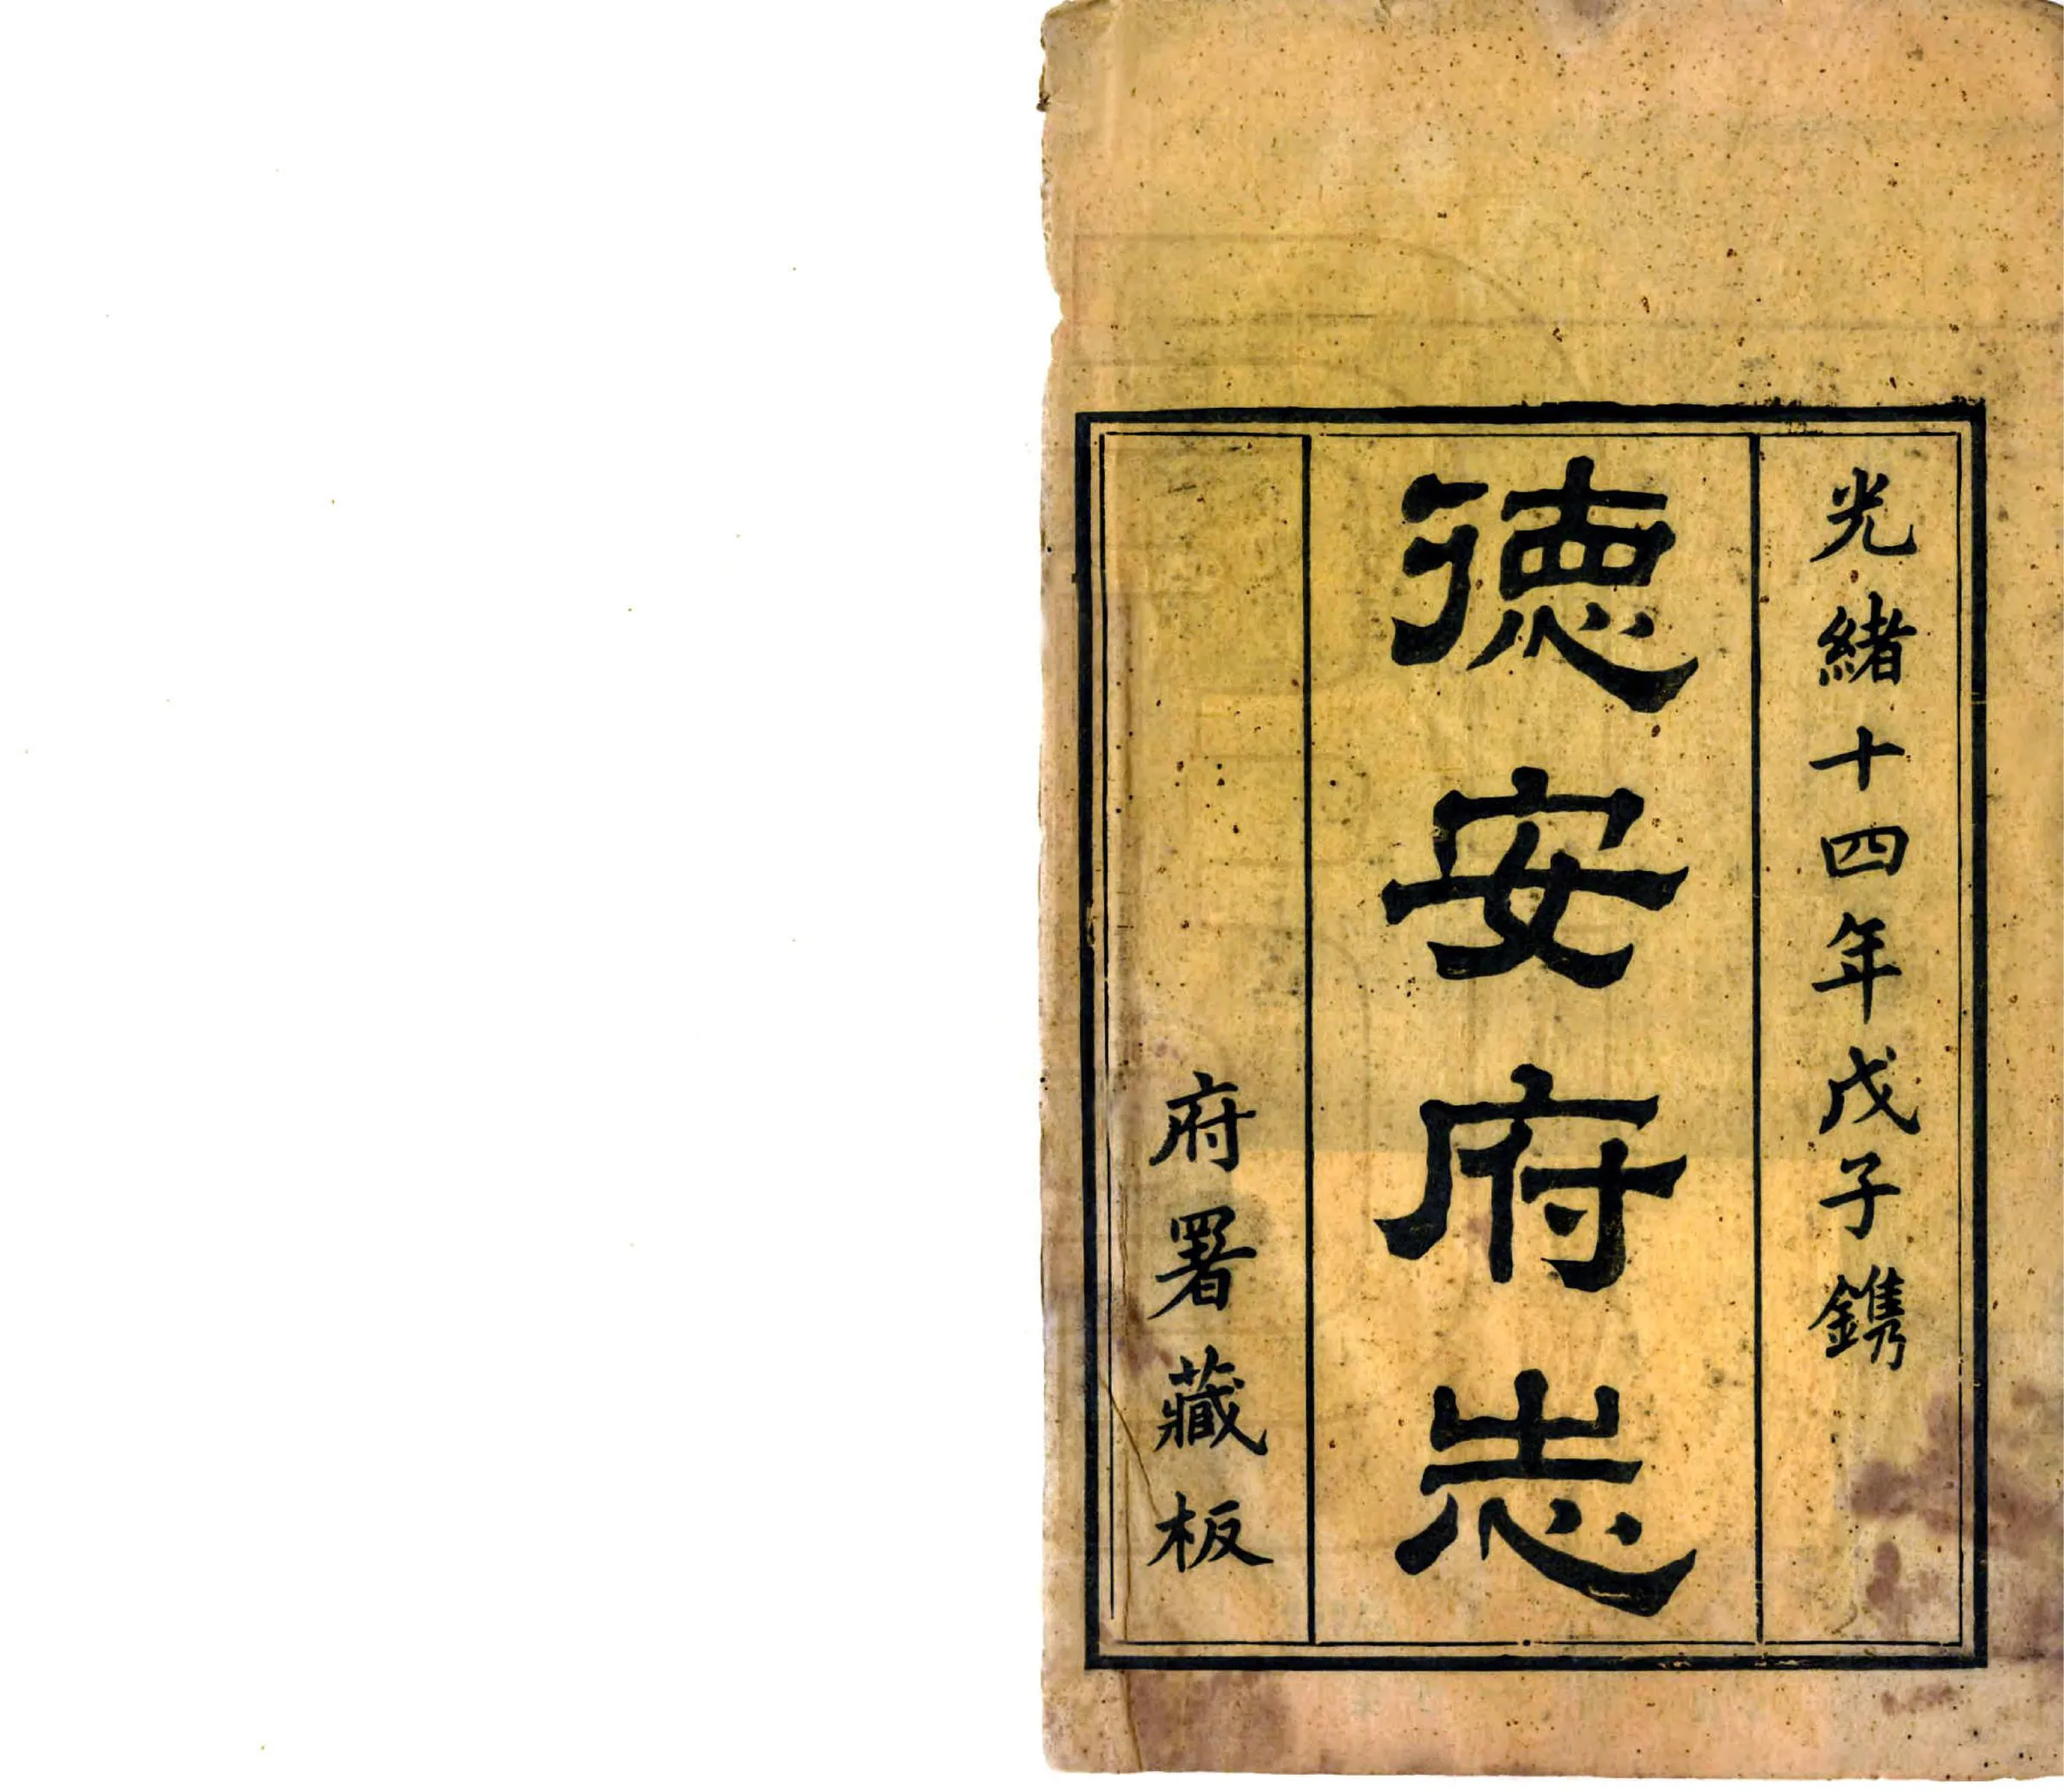 光緒十四年戊子鐫
徳安府志
府署藏板